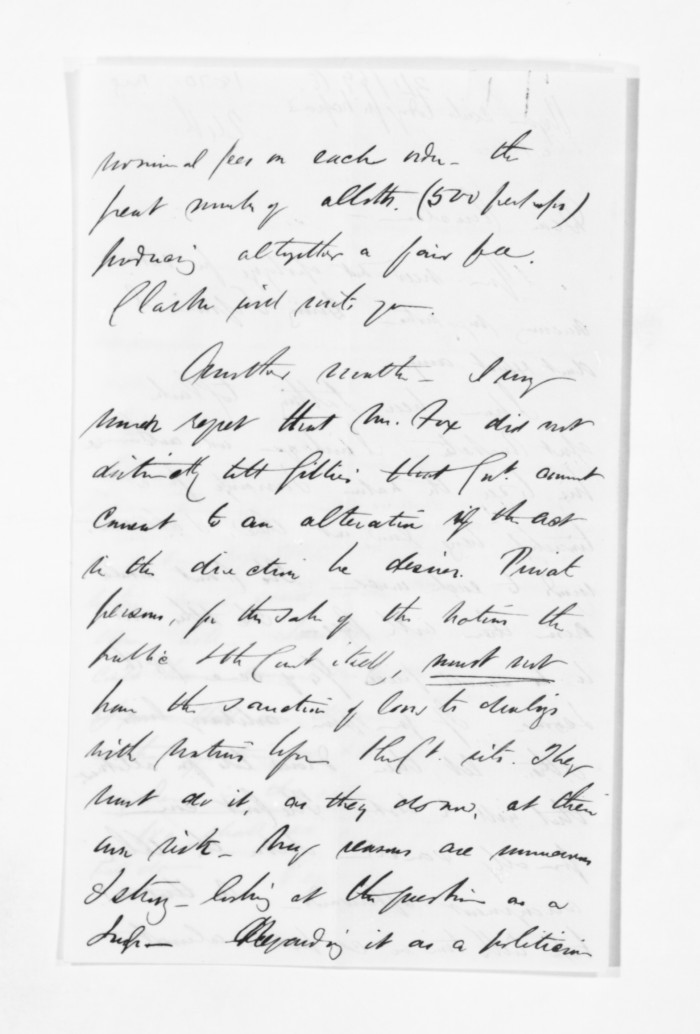 nominal fee on each order – the
great number of allotts. (500 perhaps)
producing altogether a fair fee.
Clarke will write you.
Another matter – I very
much regret that Mr. Fox did not
distinctly tell Gillies that Govt. cannot
consent to an alteration of the act
in the direction he desires. Private
persons, for the sake of the natives the
public & the Court itself, must not
have the sanction of law to dealings
with natives before the Ct. sits. They
must do it, as they do now, at their
own risk – My reasons are numerous
& strong – looking at the question as a
Judge – Regarding it as a politician